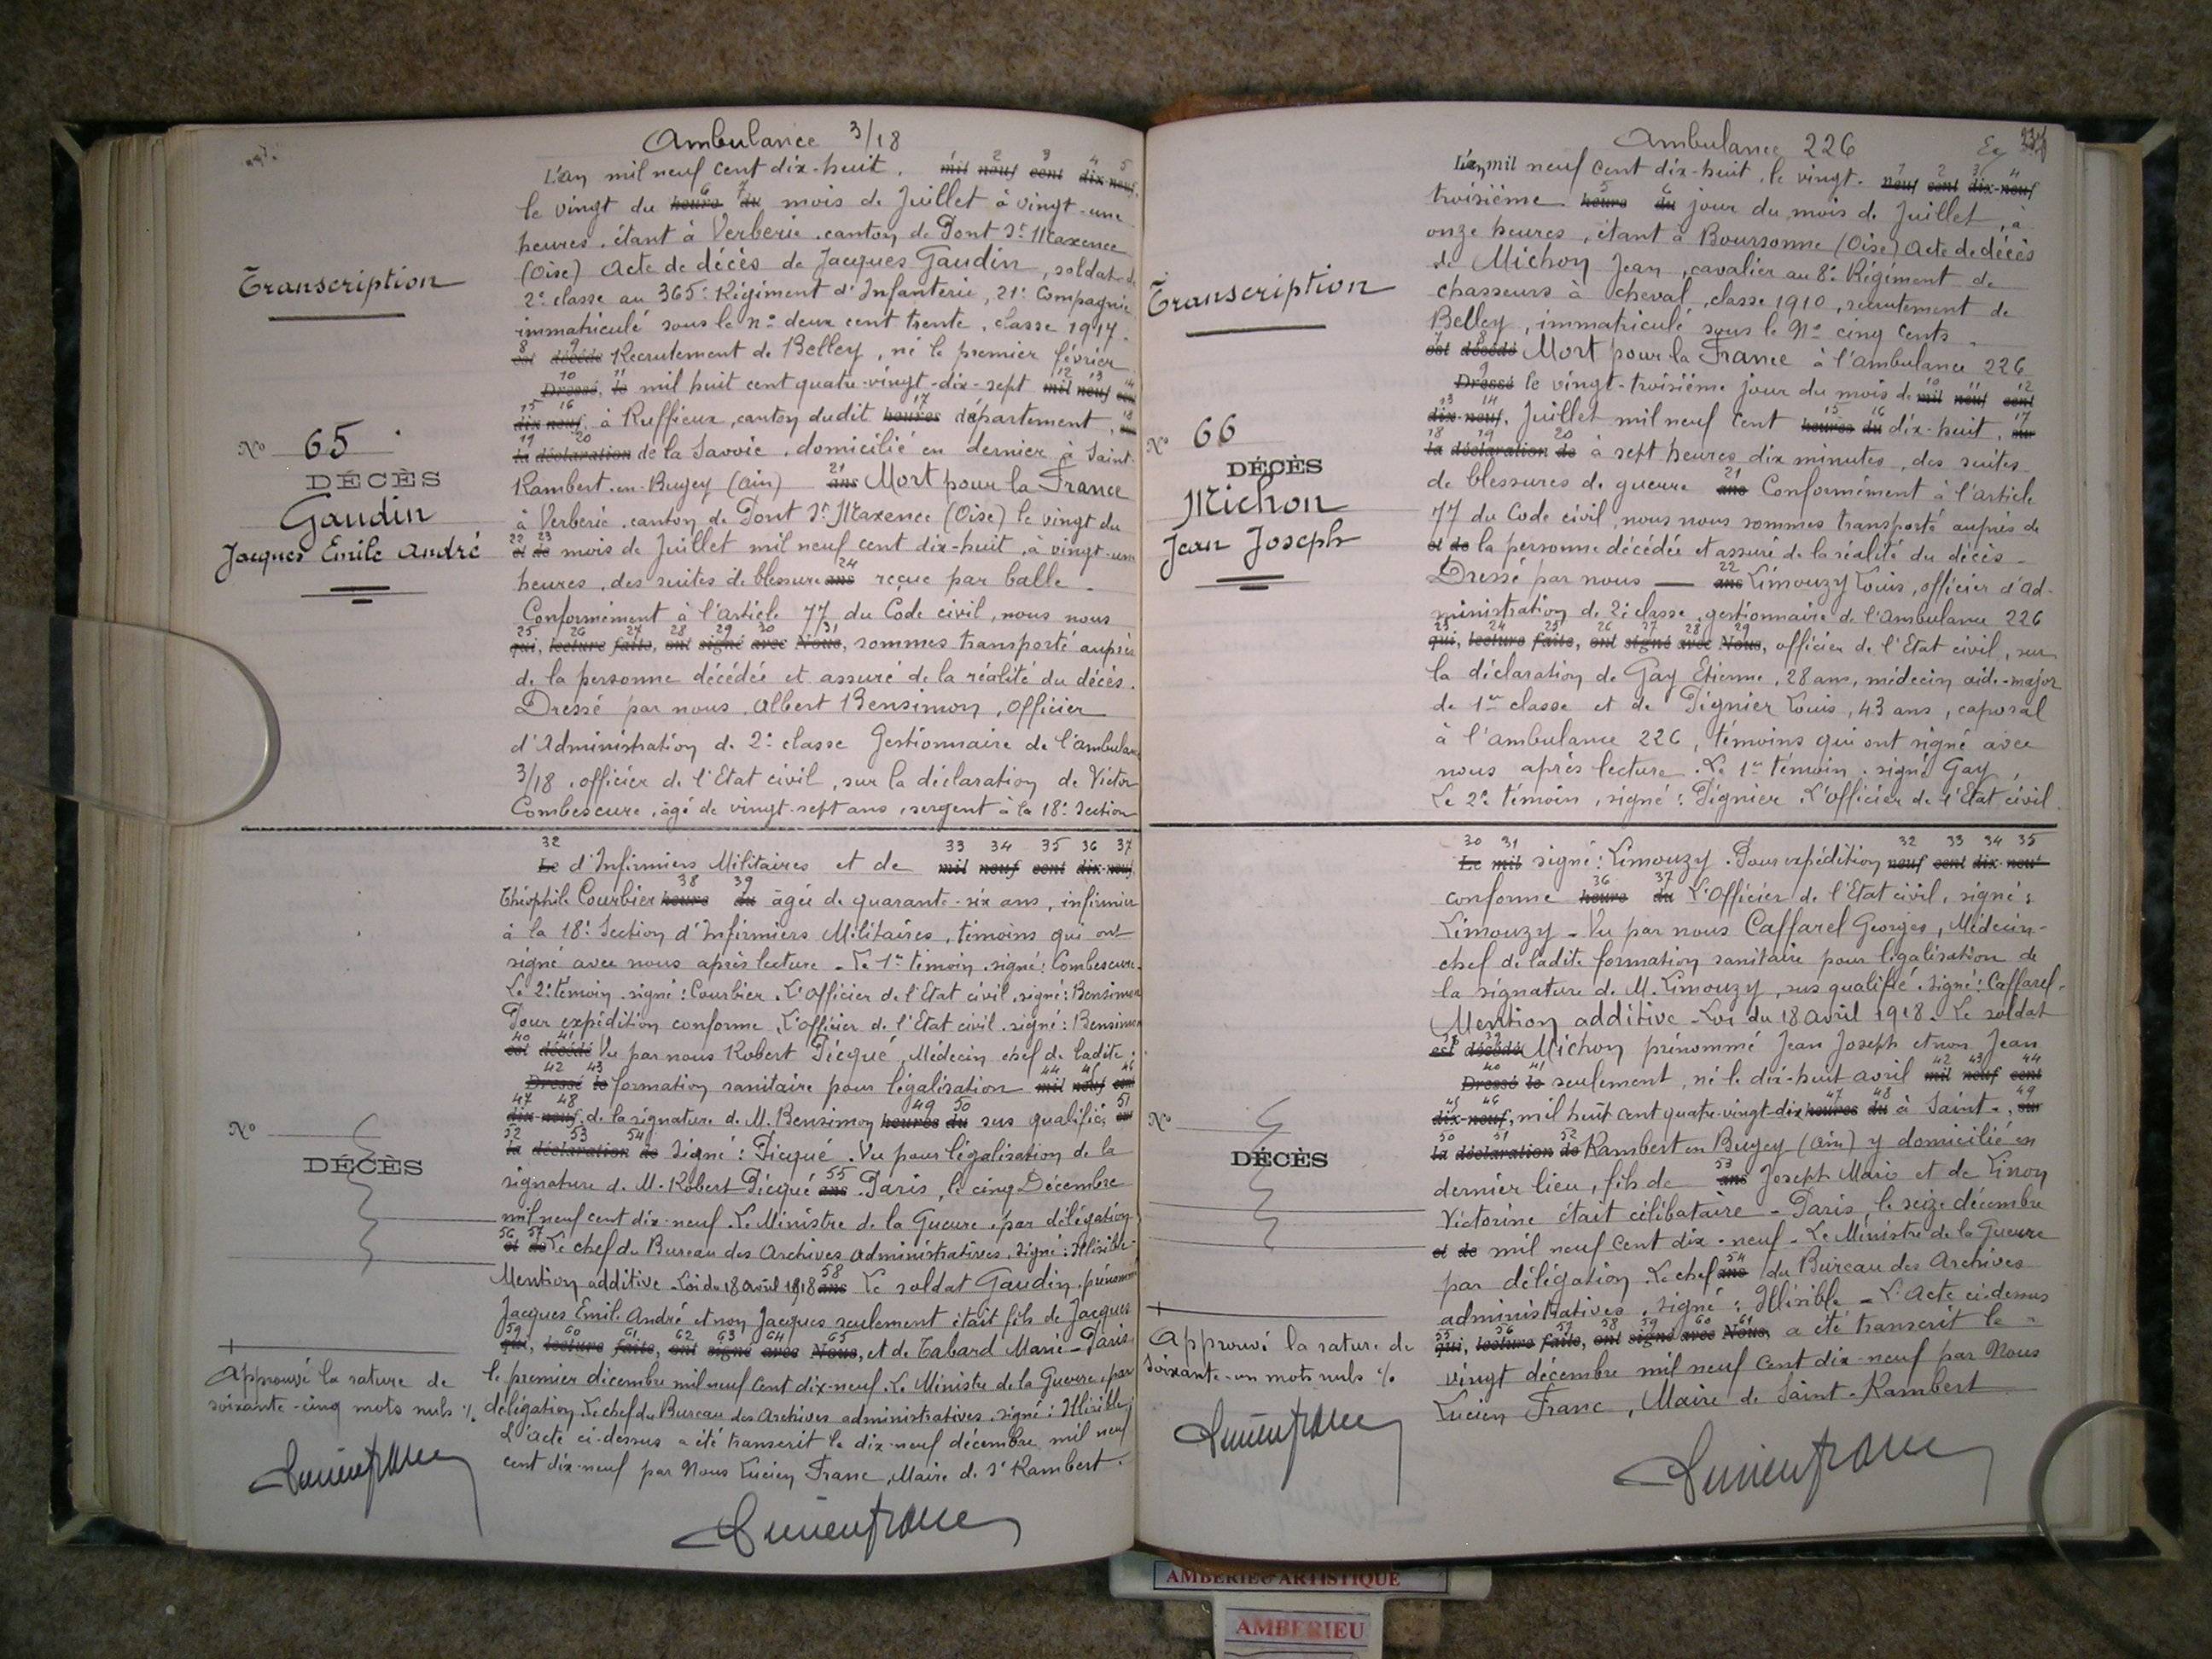 Ambulance 3/18
L'an mil neuf cent dix-huit. mil neuf cent dix-neuf,
le vingt du heure du mois de Juillet à vingt-une
heures, étant à Verberie, canton de Pont St Maxence
(Oise) Acte de décès de Jacques Gaudin, soldat de
2e classe au 365e Régiment d'Infanterie, 21e Compagnie
immatriculé sous le no deux cent trente, classe 1917.
est décédé Recrutement de Belley, né le premier février
Dressé, le mil huit cent quatre-vingt-dix-sept mil neuf cent
dix-neuf, à Ruffieux, canton dudit heures département,
la déclaration de la Savoie, domicilié en dernier à Saint-
Rambert-en-Bugey (Ain) ans Mort pour la France
à Verberie, canton de Pont St Maxence (Oise) le vingt du
et de mois de Juillet mil neuf cent dix-huit, à vingt-une
heures, des suites de blessure ans reçue par balle.
Conformément à l'Article 77 du Code civil, nous nous
qui, lecture faite, ont signé avec Nous, sommes transporté auprès
de la personne décédée et assuré de la réalité du décès.
Dressé par nous, Albert Bensimon, Officier
d'Administration de 2e classe Gestionnaire de l'ambulance
3/18, officier de l'Etat civil, sur la déclaration de Victor
Combescure, âgé de vingt-sept ans, sergent à la 18e Section
Le d'Infirmiers Militaires et de mil neuf cent dix-neuf,
Théophile Courbier heure du âgée de quarante-six ans, infirmier
à la 18e Section d'Infirmiers Militaires, témoins qui ont
signé avec nous après lecture - Le 1er témoin, signé: Combescure.
Le 2e témoin, signé: Courbier. L'Officier de l'Etat civil, signé: Bensimon
Pour expédition conforme, L'officier de l'Etat civil, signé: Bensimon
est décédé Vu par nous Robert Picqué, Médecin chef de ladite
Dressé le formation sanitaire pour légalisation mil neuf cent
dix-neuf, de la signature de M. Bensimon heures du sus qualifié, sur
la déclaration de Signé: Picqué. Vu pour légalisation de la
signature de M. Robert Picqué ans. Paris, le cinq Décembre
mil neuf cent dix-neuf. Le Ministre de la Guerre, par délégation
et de Le chef du Bureau des Archives administratives, signé: Illisible.
Mention additive - Loi du 18 avril 1918 ans Le soldat Gaudin, prénommé
Jacques Emile André et non Jacques seulement était fils de Jacques
qui, lecture faite, ont signé avec Nous, et de Tabard Marie - Paris,
le premier décembre mil neuf cent dix-neuf. Le Ministre de la Guerre, par
délégation Le chef du Bureau des Archives administratives, signé: Illisible;
L'acte ci-dessus a été transcrit le dix-neuf décembre mil neuf
cent dix-neuf par Nous Lucien Franc, Maire de St Rambert.
Lucien Franc
Transcription
No 65
DÉCÈS
Gaudin
Jacques Emile André
No
DÉCÈS
Approuvé la rature de
soixante-cinq mots nuls %.
Lucien Franc
Ambulance 226
L'an mil neuf cent dix-huit, le vingt- neuf cent dix-neuf
troisième heure du jour du mois de Juillet, à
onze heures, étant à Boursonne (Oise) Acte de décès
de Michon Jean, cavalier au 8e Régiment de
chasseurs à cheval, classe 1910, recrutement de
Belley, immatriculé sous le No cinq cents.
est décédé Mort pour la France à l'ambulance 226
Dressé le vingt-troisième jour du mois de mil neuf cent
dix-neuf, Juillet mil neuf cent heures du dix-huit, sur
la déclaration de à sept heures dix minutes, des suites
de blessures de guerre ans Conformément à l'article
77 du Code civil, nous nous sommes transporté auprès de
et de la personne décédée et assuré de la réalité du décès -
Dressé par nous — ans Limouzy Louis, officier d'ad-
ministration de 2e classe, gestionnaire de l'Ambulance 226
qui, lecture faite, ont signé avec Nous, officier de l'Etat civil, sur
la déclaration de Gay Etienne, 28 ans, médecin aide-major
de 1re classe et de Pignier Louis, 43 ans, caporal
à l'ambulance 226, témoins qui ont signé avec
nous après lecture. Le 1er témoin, signé Gay,
Le 2e témoin, signé: Pignier. L'officier de l'Etat civil
Le mil signé: Limouzy. Pour expédition neuf cent dix-neuf
conforme heure du L'Officier de l'Etat civil, signé:
Limouzy - Vu par nous Caffarel Georges, Médecin-
chef de ladite formation sanitaire pour légalisation de
la signature de M. Limouzy, sus qualifié. Signé: Caffarel.
Mention additive - Loi du 18 avril 1918. Le soldat
est décédé Michon prénommé Jean Joseph et non Jean
Dressé le seulement, né le dix-huit avril mil neuf cent
dix-neuf, mil huit cent quatre-vingt-dix heures du à Saint-, sur
la déclaration de Rambert en Bugey (Ain) y domicilié en
dernier lieu, fils de ans Joseph Marie et de Linon
Victorine était célibataire - Paris, le seize décembre
et de mil neuf cent dix-neuf - Le Ministre de la Guerre
par délégation Le chef ans du Bureau des Archives
administratives, signé: Illisible - L'Acte ci-dessus
qui, lecture faite, ont signé avec Nous, a été transcrit le
vingt décembre mil neuf cent dix-neuf par Nous
Lucien Franc, Maire de Saint-Rambert
Lucien Franc
Transcription
No 66
DÉCÈS
Michon
Jean Joseph
No
DÉCÈS
Approuvé la rature de
soixante-un mots nuls %
Lucien Franc
AMBERIEU ARTISTIQUE
AMBERIEU